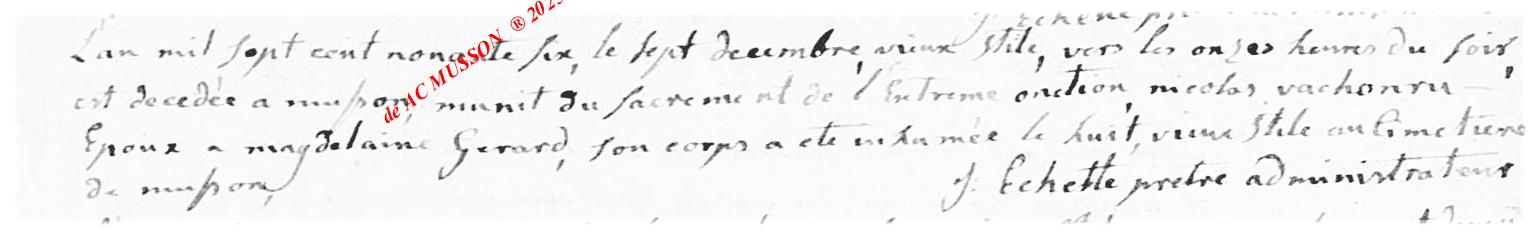 J. Echette pr
L'an mil sept cent nonante six, le sept decembre, vieux stile, vers les onzes heures du soir,
est decedée a musson, munit du sacrement de l'Extreme onction, nicolas vachonru
Epoux a magdelaine Gerard, son corps a ete inhumée le huit, vieux stile au Cimetiere
de musson,
J: Echette pretre administrateur
de AC MUSSON ® 202